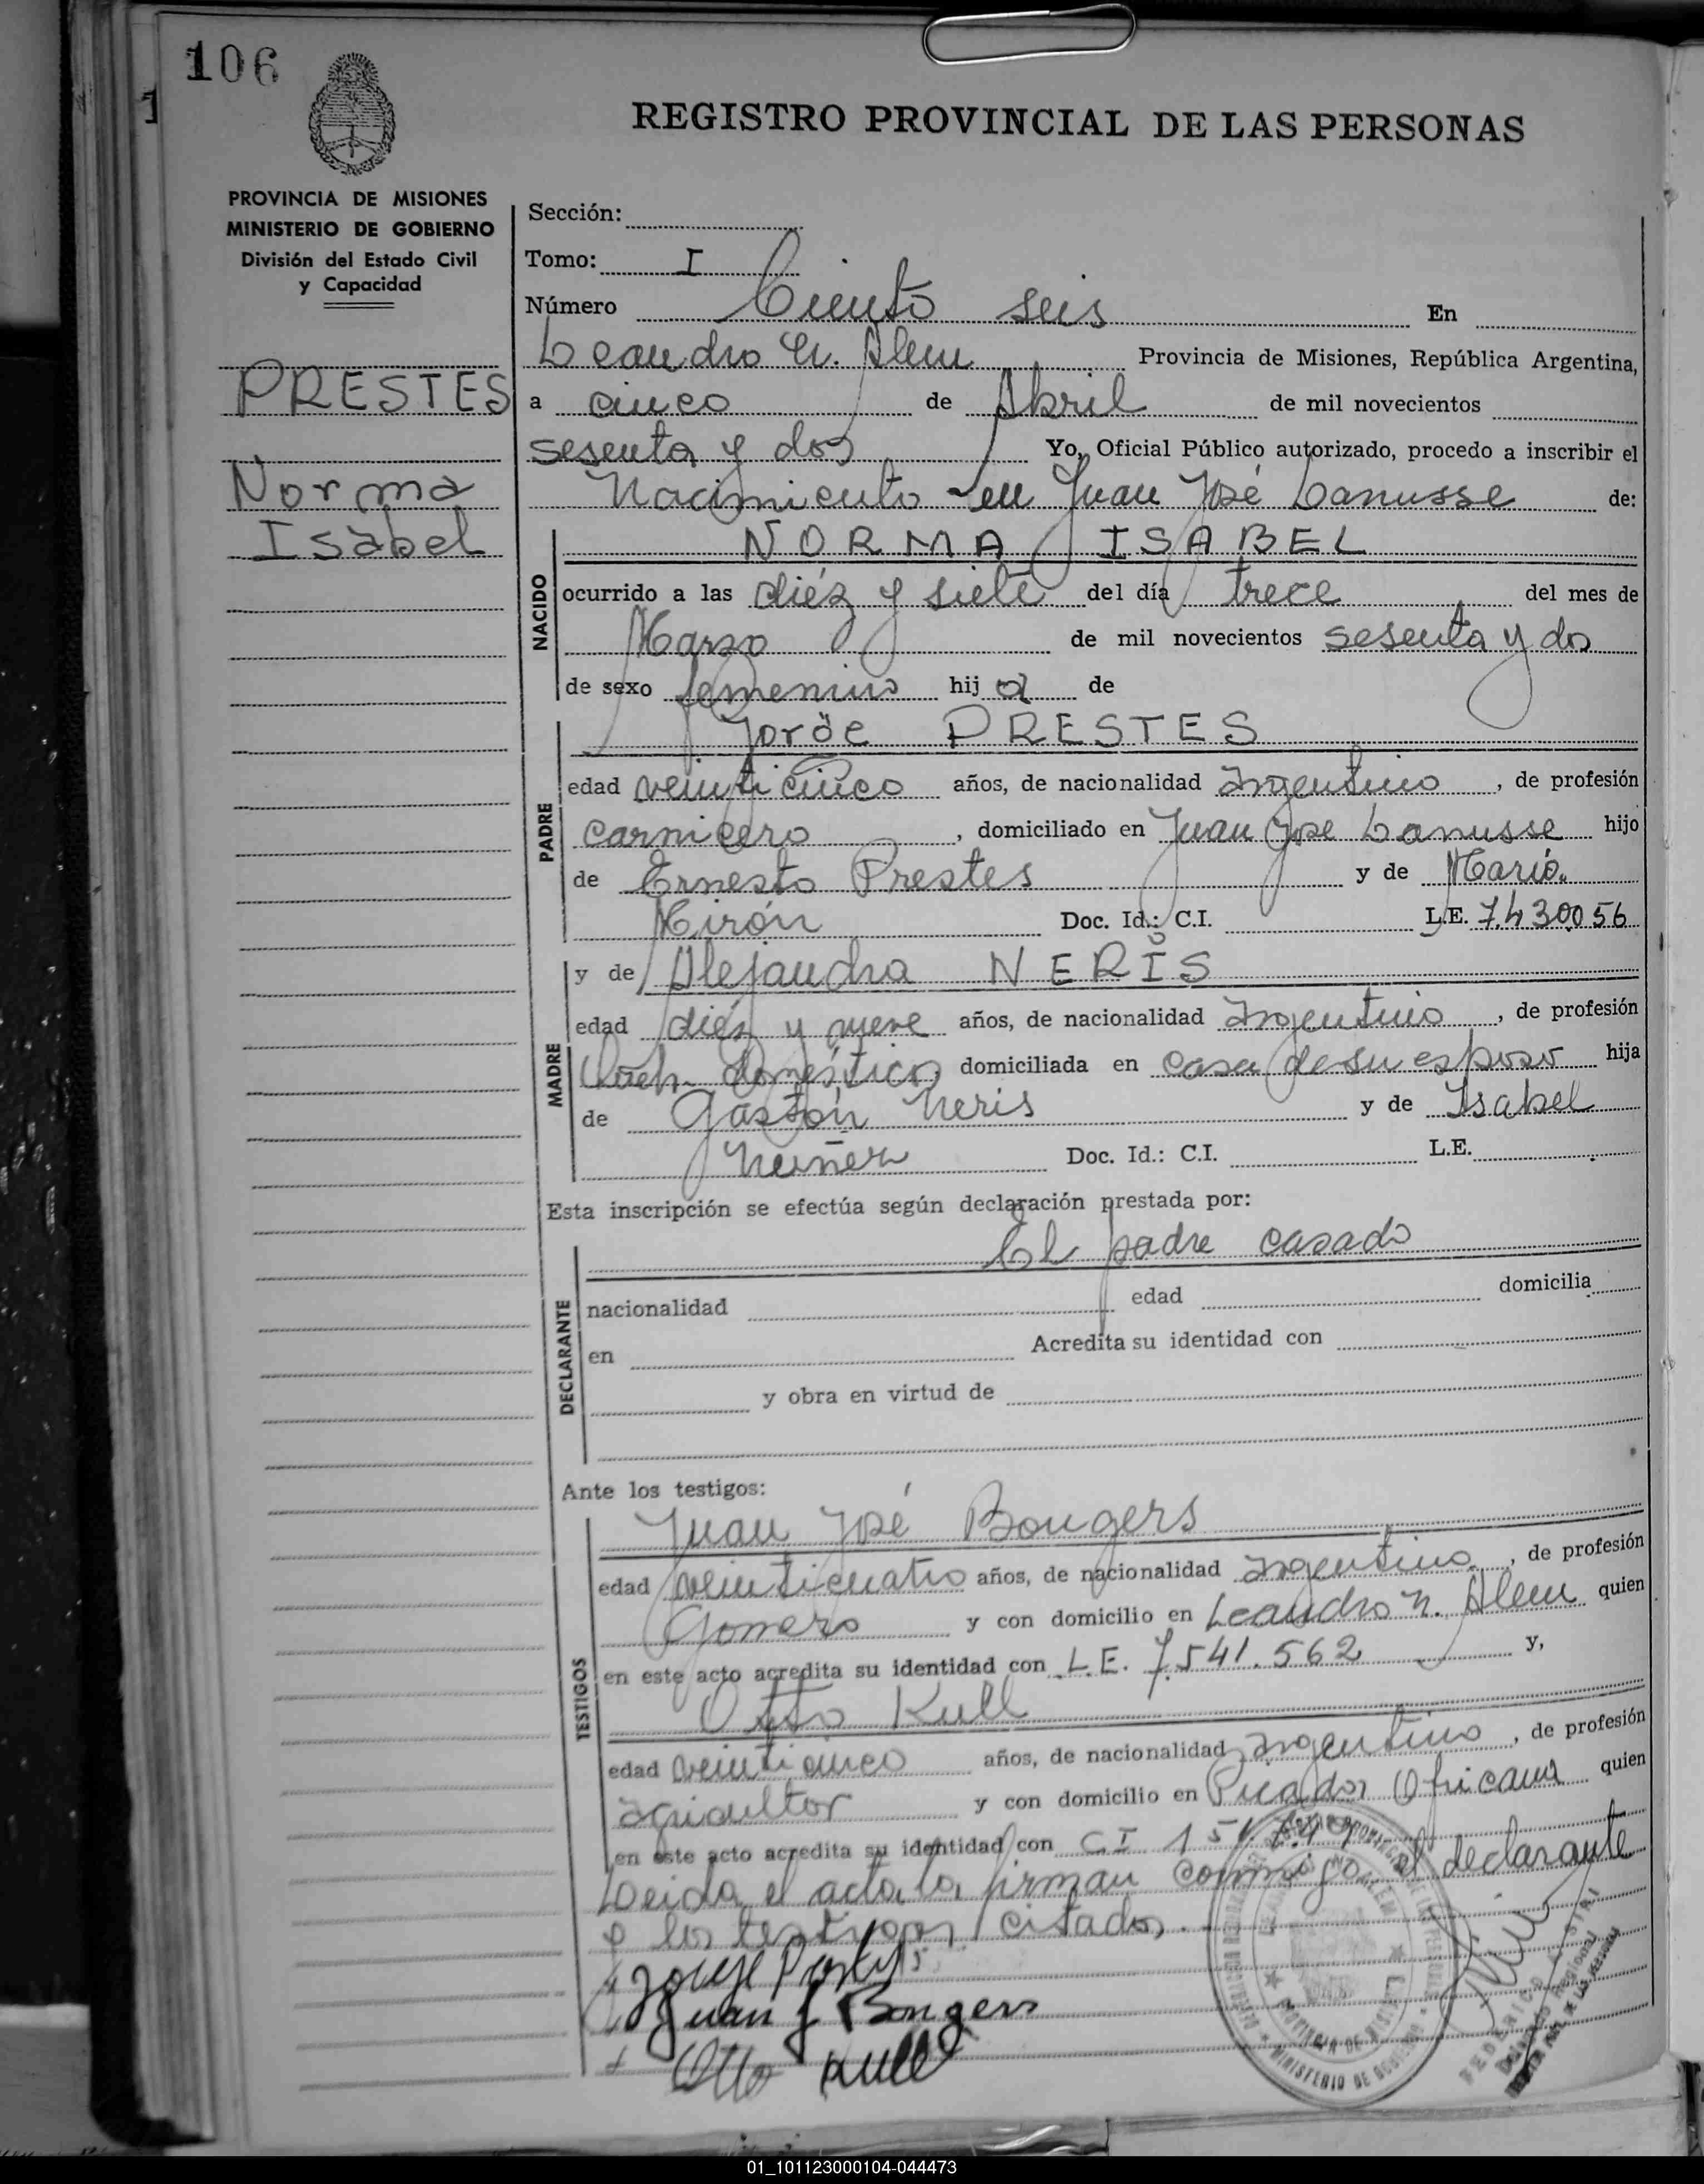 106
REGISTRO PROVINCIAL DE LAS PERSONAS
PROVINCIA DE MISIONES
MINISTERIO DE GOBIERNO
División del Estado Civil
y Capacidad
PRESTES
Norma
Isabel
Sección:
Tomo: I
Número Ciento seis En
Leandro N. Alem Provincia de Misiones, República Argentina,
a cinco de Abril de mil novecientos
sesenta y dos Yo, Oficial Público autorizado, procedo a inscribir el
Nacimiento en Juan José Lanusse de:
NACIDO
NORMA ISABEL
ocurrido a las diéz y siete del día trece del mes de
Marzo de mil novecientos sesenta y dos
de sexo femenino hija de
PADRE
Jorge PRESTES
edad veinticinco años, de nacionalidad argentino, de profesión
carnicero, domiciliado en Juan José Lanusse hijo
de Ernesto Prestes y de María
Mirón Doc. Id.: C.I. L.E. 7.430056
MADRE
y de Alejandra NERIS
edad diéz y nueve años, de nacionalidad argentino, de profesión
Queh. Doméstico, domiciliada en casa de su esposo hija
de Gastón Neris y de Isabel
Doc. Id.: C.I. L.E.
Esta inscripción se efectúa según declaración prestada por:
DECLARANTE
El padre casado
nacionalidad edad domicilia
en Acredita su identidad con
y obra en virtud de
Ante los testigos:
TESTIGOS
Juan José Bongers
edad veinticuatro años, de nacionalidad argentino, de profesión
Gomero y con domicilio en Leandro N. Alem quien
en este acto acredita su identidad con L.E. 7.541.562 y,
Otto Kull
edad veinticinco años, de nacionalidad argentino, de profesión
agricultor y con domicilio en Picada quien
en este acto acredita su identidad con CI
Leida el acta la firman conmigo el declarante
y los testigos citados.
Jorge
Juan J Bongers
Otto Kull
PROVINCIA DE MISIONES
MINISTERIO DE GOBIERNO
01_101123000104-044473